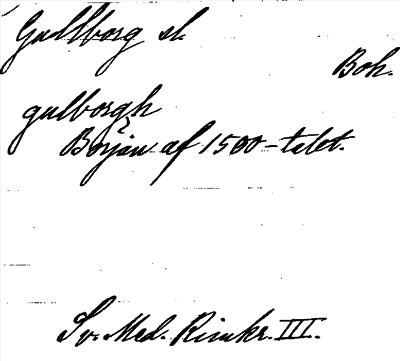 Gullborg sl.
Boh.
gulborgh
Början af 1500-talet.
Sv. Med. Rimkr. III.